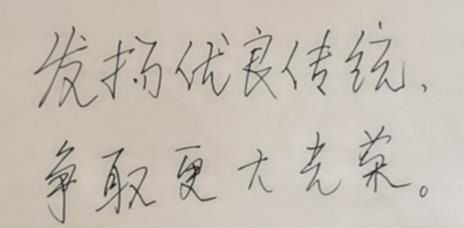 发扬优良传统、
争取更大光荣。